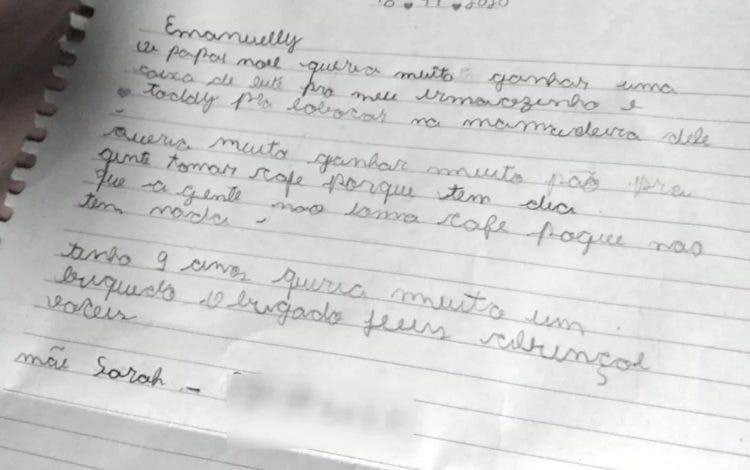 11 2020
Emanuelly
oi papai noel queria muito ganhar uma
caixa de leite pro meu irmaozinho e
toddy pra colocar na mamadeira dele
queria muito ganhar muito pão pra
gente tomar cafe porque tem dia
que a gente nao toma cafe poque nao
tem nada
tenho 9 anos queria muito um
briquedo obrigado jesus
voceis
mãe Sarah -